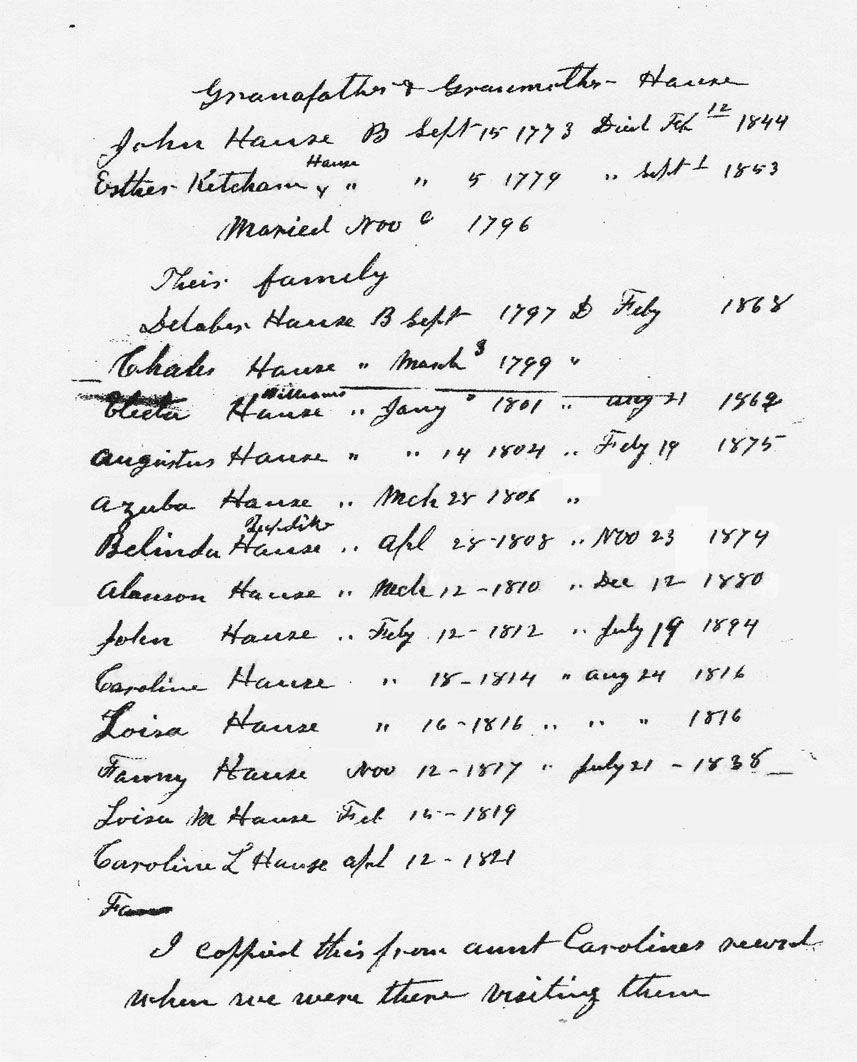 Grandfather & Granmother Hause
John Hause B Sept 15 1773 Died Feb 12 1844
Hause
Esther Ketcham & " " 5 1779 " Sept 1 1853
Maried Nov 1796
Their family
Hause B Sept 1797 D Feby 1868
Charles Hause " March 3 1799 "
Williams
Electa Hause " Jany 1801 " aug 21
Augustus Hause " " 14 1804 " Feby 19 1875
Azuba Hause " Mch 28 1806 "
Belinda Hause " Apl 28-1808 " Nov 23 1874
Alanson Hause " Mch 12-1810 " Dec 12 1880
John Hause " Feby 12-1812 " July 19 1894
Caroline Hause " 18-1814 " aug 24 1816
Loisa Hause " 16-1816 " " " 1816
Fanny Hause Nov 12-1817 " July 21-1838
Loisa M Hause Feb 15-1819
Caroline L Hause apl 12-1821
I coppied this from aunt Carolines record
when we were there visiting them